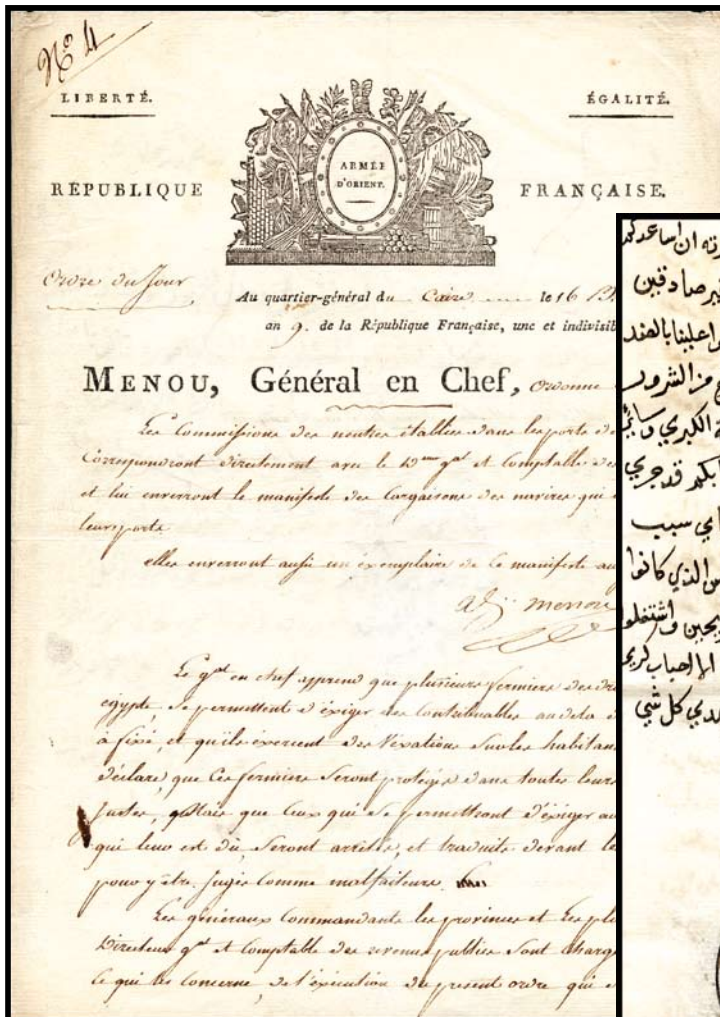 Nº 4
LIBERTÉ.
ÉGALITÉ.
ARMÉE
D'ORIENT.
RÉPUBLIQUE
FRANÇAISE.
Ordre du Jour
Au quartier-général du Caire le 16
an 9. de la République Française, une et indivisib
MENOU, Général en Chef, ordonne
Les Commissions des neutres établies dans les ports de
Correspondront directement avec le et Comptable des
et lui enverront le manifeste des Cargaisons des navires qui
leurs ports.
elles enverront aussi un exemplaire de ce manifeste au
menou
Le gal en chef apprend que plusieurs fermiers des
egypte, se permettent d'éxiger des Contribuables audela
à fixé, et qu'ils éxercent des Vexations sur les habitan
déclare que Ces fermiers Seront protégés dans toutes leurs
Justes, que Ceux qui se permettront d'éxiger au
qui leur est dû, Seront arrêtés, et traduits devant le
pour y être Jugés Comme malfaiteurs.
Les généraux Commandants les provinces et
Directeur gal et Comptable des revenus publics Sont Charg
Ce qui les Concerne, de l'éxécution du présent ordre qui
ان اساعدكم
صادقين
علينا بالهند
من الشرور
الكبري
قد جري
سبب
الذي كانوا
واشتغلوا
كل شي